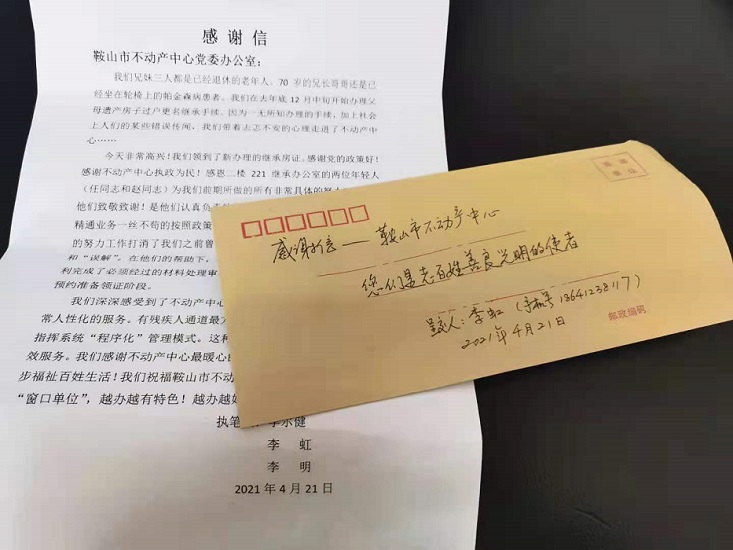 感谢信
鞍山市不动产中心党委办公室：
我们兄妹三人都是已经退休的老年人，70 岁的兄长哥哥还是已
经坐在轮椅上的帕金森病患者。我们在去年底 12 月中旬开始办理父
母遗产房子过户更名继承手续。因为一无所知办理的手续，加上社会
上人们的某些错误传闻，我们带着忐忑不安的心理走进了不动产中
心……
今天非常高兴！我们领到了新办理的继承房证。感谢党的政策好！
感谢不动产中心执政为民！感恩二楼 221 继承办公室的两位年轻人
（任同志和赵同志）为我们前期所做的所有非常具体的努
他们致敬致谢！是他们认真负
精通业务一丝不苟的按照政策
的努力工作打消了我们之前曾
和“误解”。在他们的帮助下，
利完成了必须经过的材料处理审
预约准备领证阶段。
我们深深感受到了不动产中心
常人性化的服务。有残疾人通道最
指挥系统“程序化”管理模式。这种
效服务。我们感谢不动产中心最暖心
步福祉百姓生活！我们祝福鞍山市不动
“窗口单位”，越办越有特色！越办越
执笔
李 虹
李 明
2021 年 4 月 21 日
感谢信——鞍山市不动产中心
您们是老百姓善良光明的使者
呈交人：李虹（手机号13641238117）
2021年4月21日
邮政编码